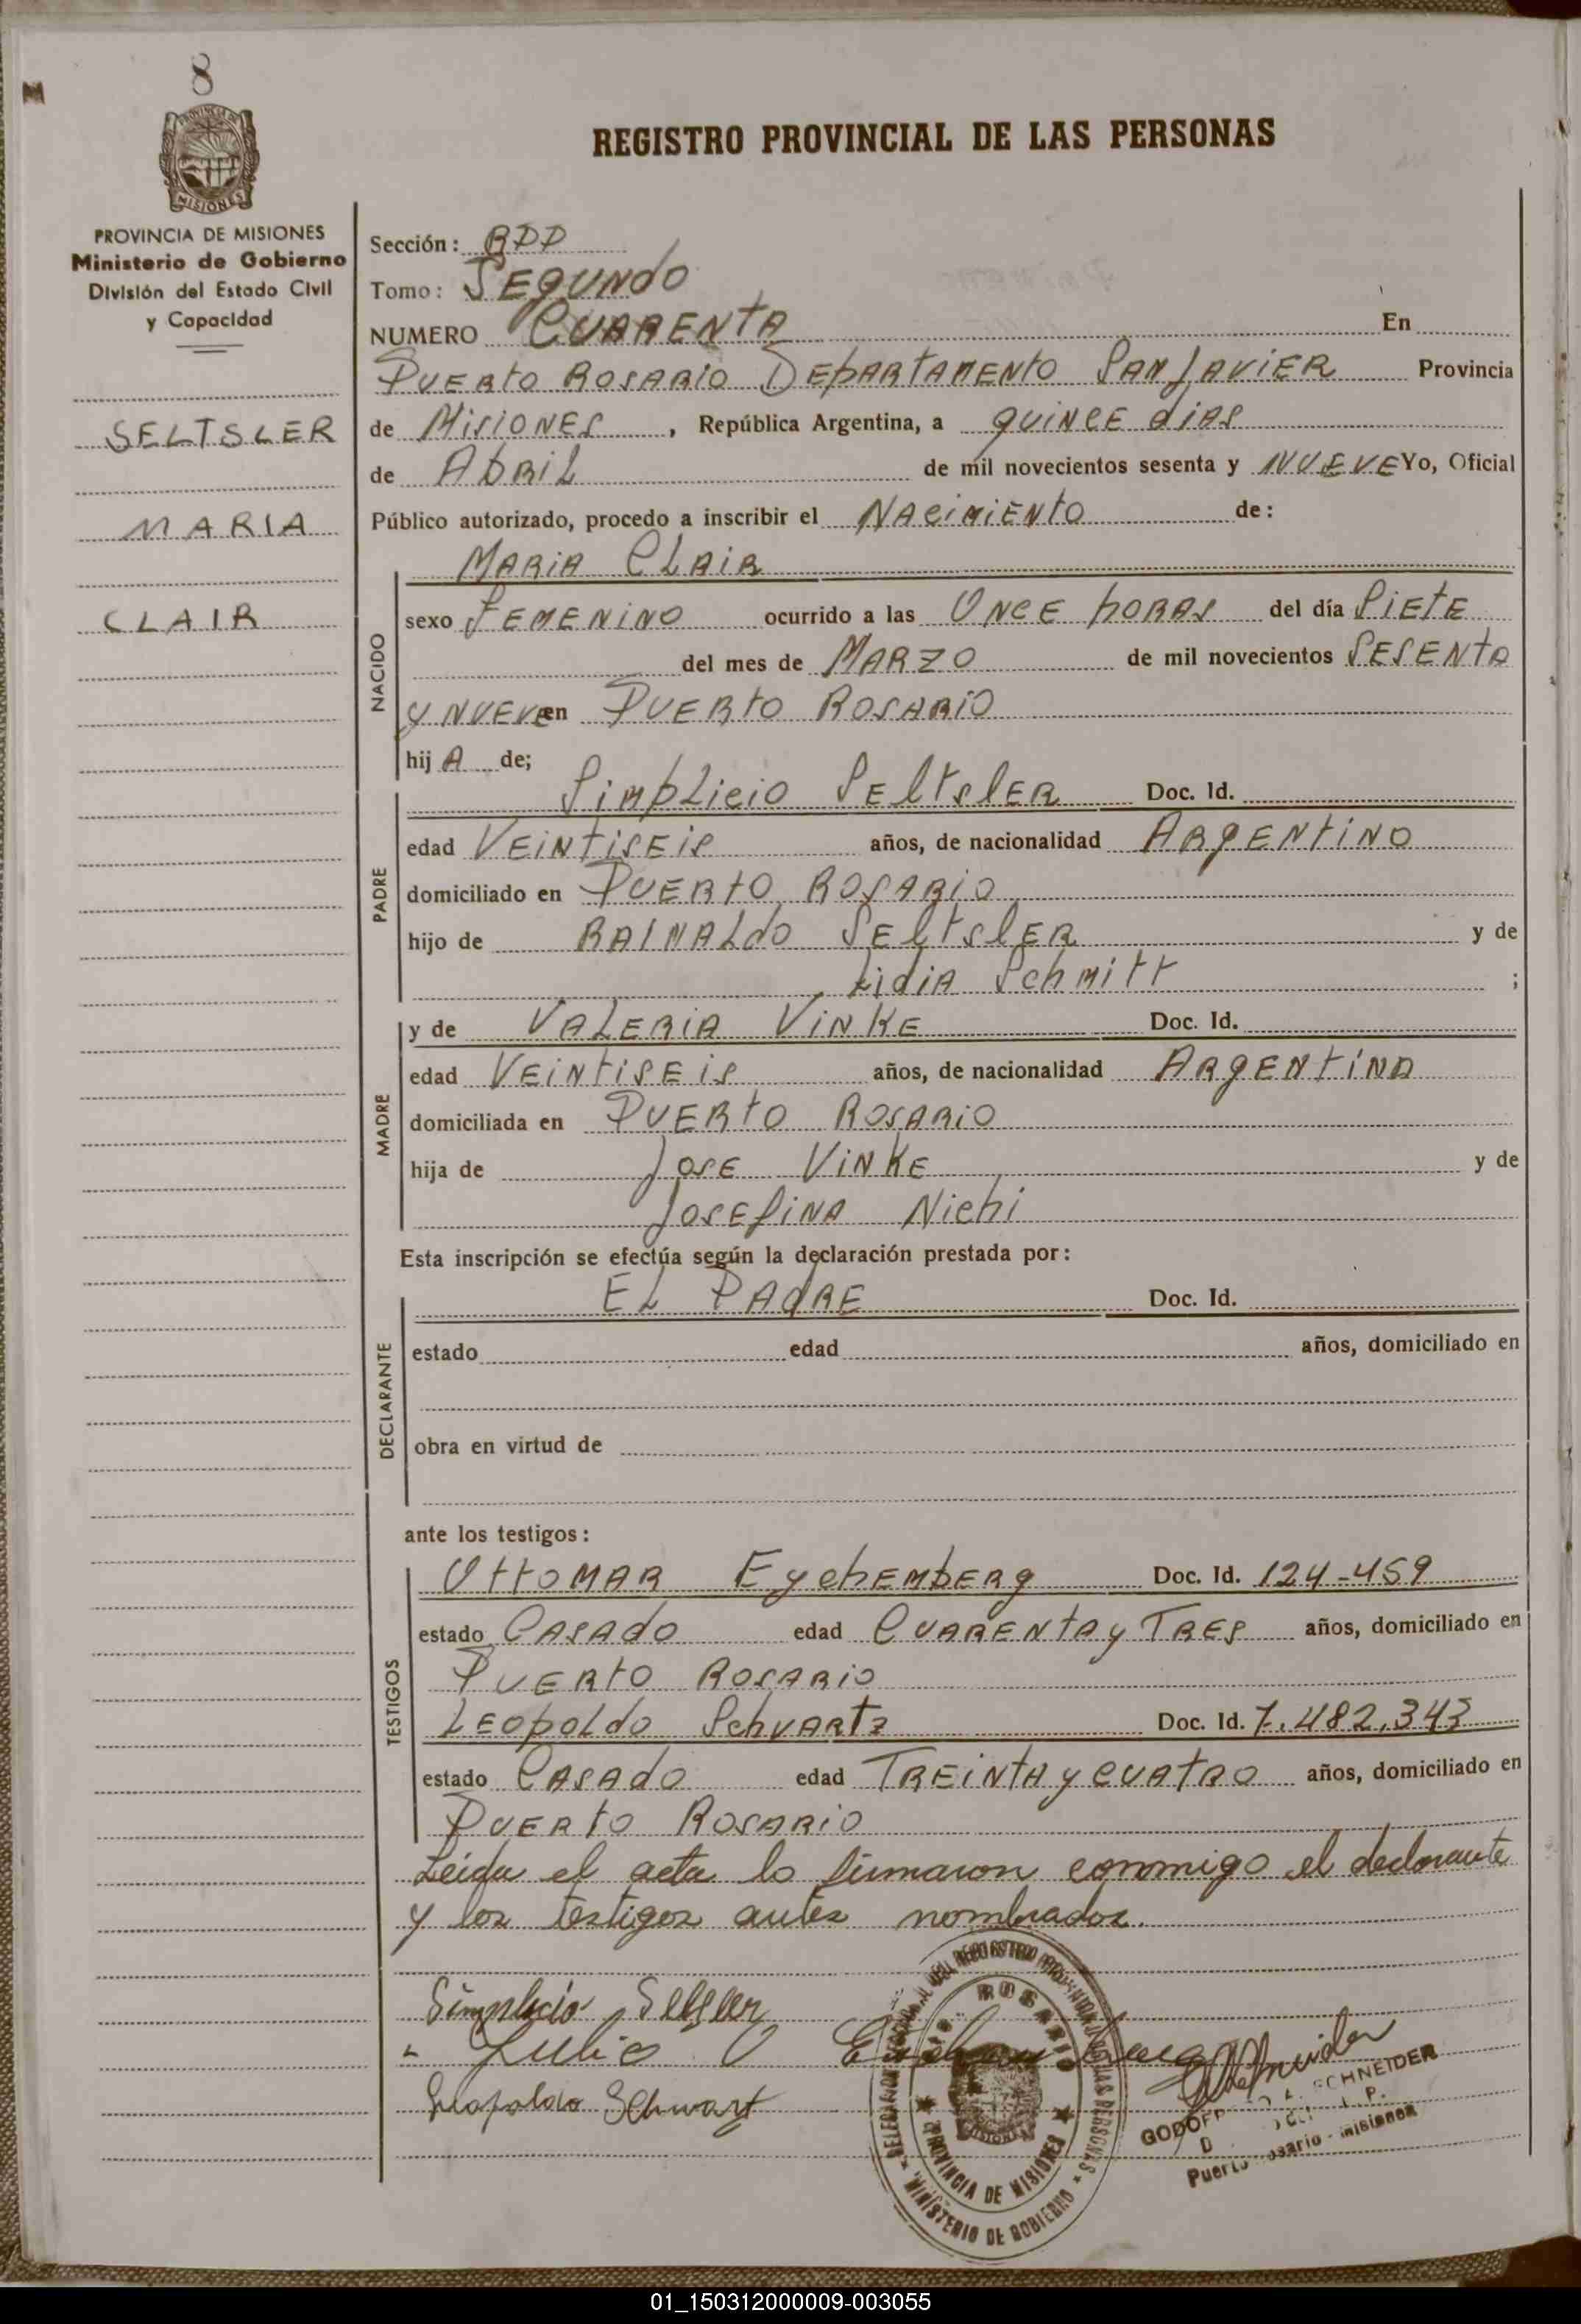 8
REGISTRO PROVINCIAL DE LAS PERSONAS
MISIONES
PROVINCIA DE MISIONES
Ministerio de Gobierno
División del Estado Civil
y Capacidad
SELTSLER
MARIA
CLAIR
Sección: RPP
Tomo: SEGUNdO
NUMERO CUARENtA En
PUERtO ROSARIO DEpARtAMENtO SAN JAVIER Provincia
de MiSiONES, República Argentina, a QUiNCE diAS
de AbRiL de mil novecientos sesenta y NUEVE Yo, Oficial
Público autorizado, procedo a inscribir el NACiMiENtO de:
MARiA CLAiR
NACIDO
sexo FEMENiNO ocurrido a las ONCE hORAS del día SiEtE
del mes de MARZO de mil novecientos SESENtA
y NUEVE en PUERtO ROSARiO
hij A de;
PADRE
SimpLicio SEltslER Doc. Id.
edad VEiNtiSEiS años, de nacionalidad ARgENtiNO
domiciliado en PUERtO ROSARiO
hijo de RAiNALdO SEltslER y de
LidiA Schmitt ;
MADRE
y de VALERiA ViNKE Doc. Id.
edad VEiNtiSEiS años, de nacionalidad ARgENtiNA
domiciliada en PUERtO ROSARiO
hija de JOSE ViNKE y de
JOSEfiNA Nichi
Esta inscripción se efectúa según la declaración prestada por:
DECLARANTE
EL PAdRE Doc. Id.
estado edad años, domiciliado en
obra en virtud de
ante los testigos:
TESTIGOS
OttOMAR EychEMbERg Doc. Id. 124-459
estado CASAdO edad CUARENtA y TRES años, domiciliado en
PUERtO ROSARiO
LEOpOLdO SchVARtz Doc. Id. 7.482.343
estado CASAdO edad TREiNtA y CUAtRO años, domiciliado en
PUERtO ROSARiO
Leida el acta lo firmaron conmigo el declarante
y los testigos antes nombrados.
Simplicio Seltsler
Julio O
Leopoldo Schwart
ROSARIO
PROVINCIA DE MISIONES
MINISTERIO DE GOBIERNO
SCHNEIDER
Misiones
01_150312000009-003055